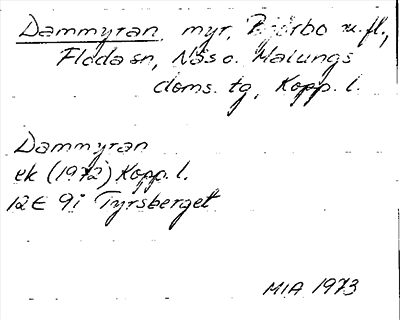 Dammyran myr, Björbo m.fl.,
Floda sn, Nås o. Malungs
doms. tg, Kopp. l.
Dammyran
ek (1972) Kopp. l.
12E 9i Tyrsberget
MIA 1973